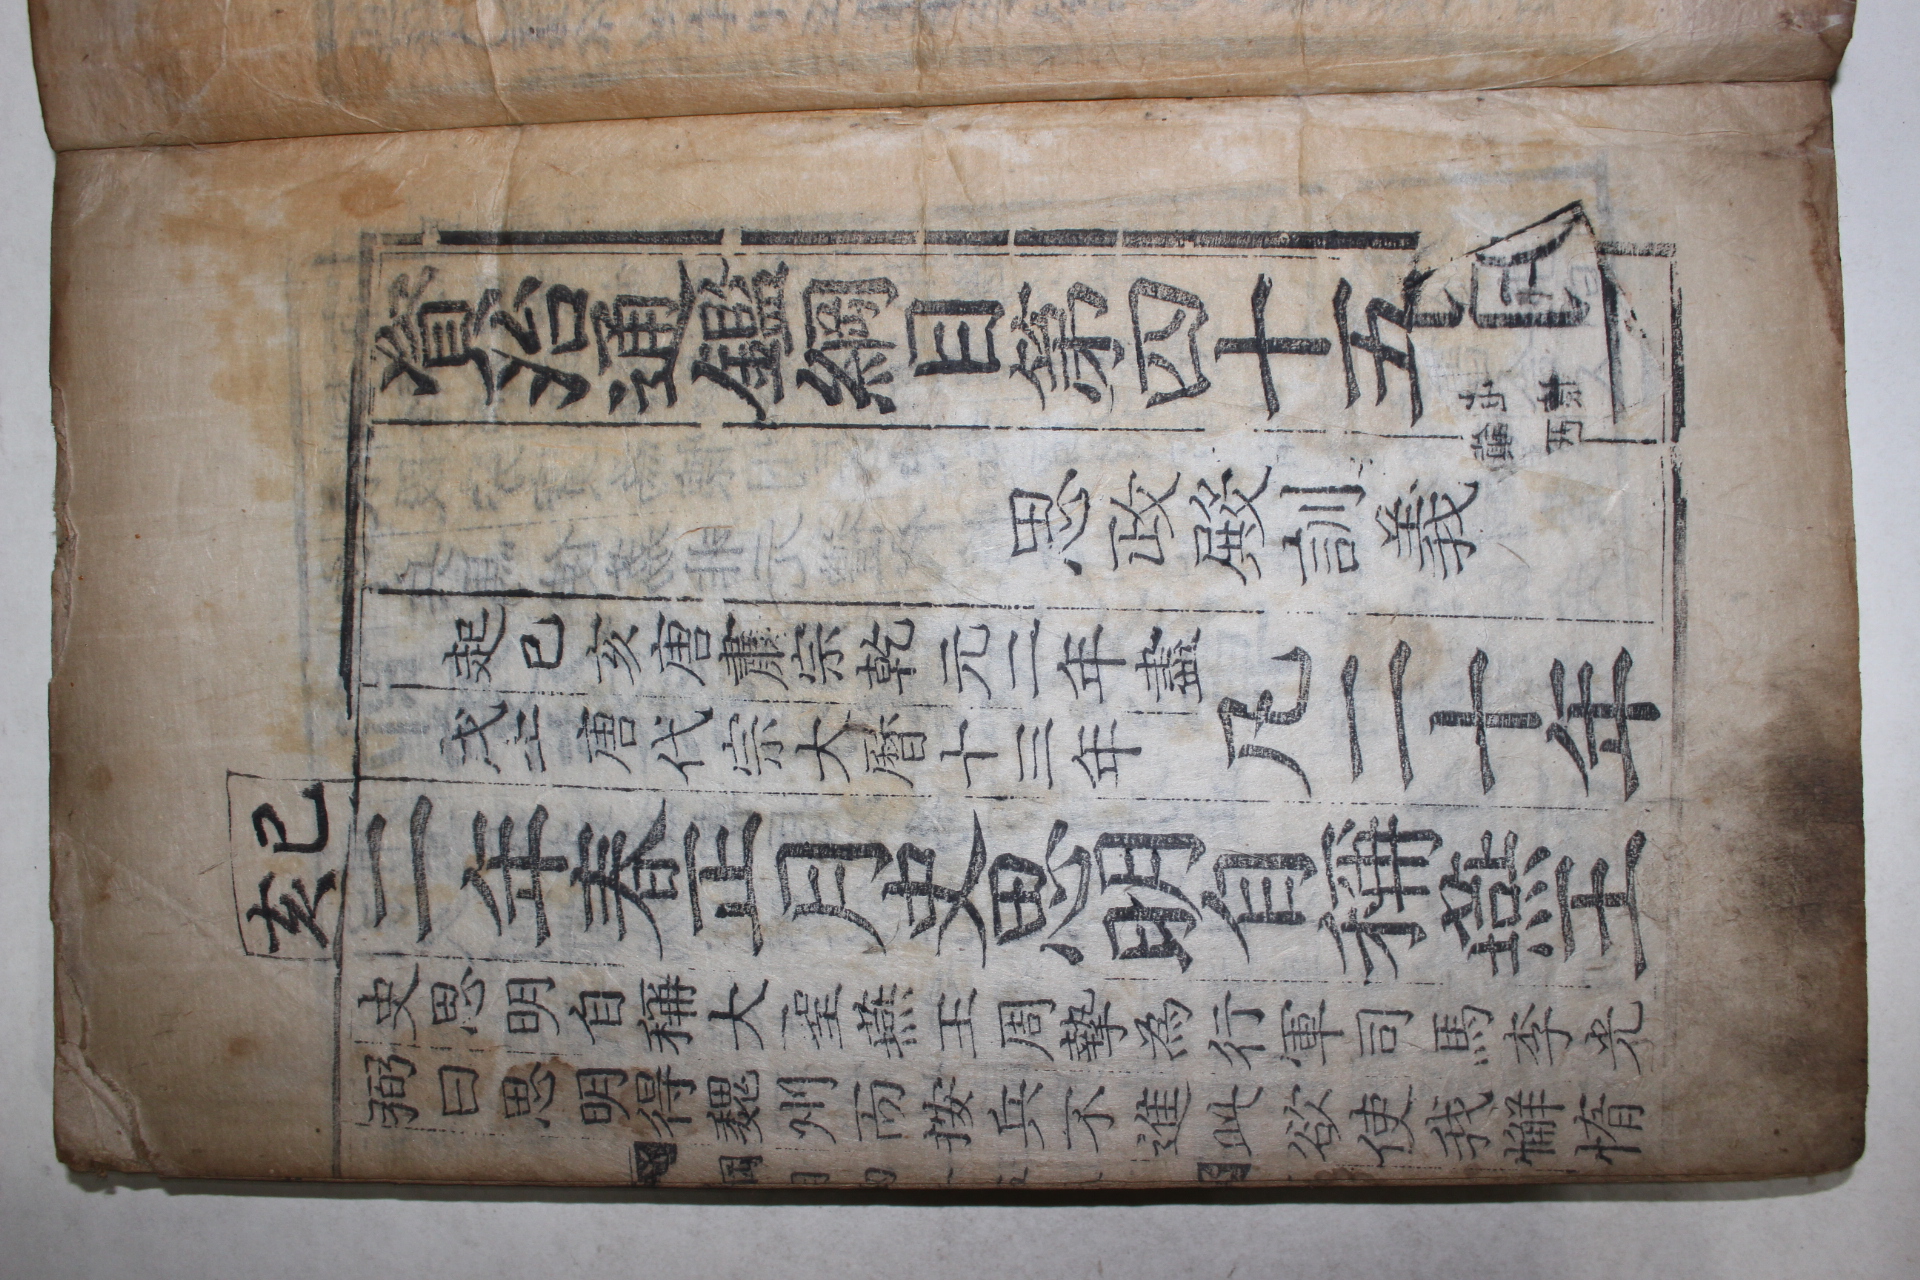 資治通鑑綱目第四十五
思政殿訓義
起己亥唐肅宗乾元二年盡
戊午唐代宗大曆十三年
凡二十年
己亥
二年春正月史思明自稱燕王
史思明自稱大聖燕王周摯爲行軍司馬李光
弼曰思明得魏州而按兵不進此欲使我懈惰